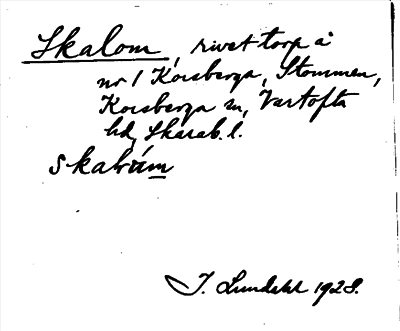 Skalom, rivet torp å
nr 1 Korsberga, Stommen,
Korsberga sn, Vartofta
hd, Skarab. l.
skalám
J. Lundahl 1928.